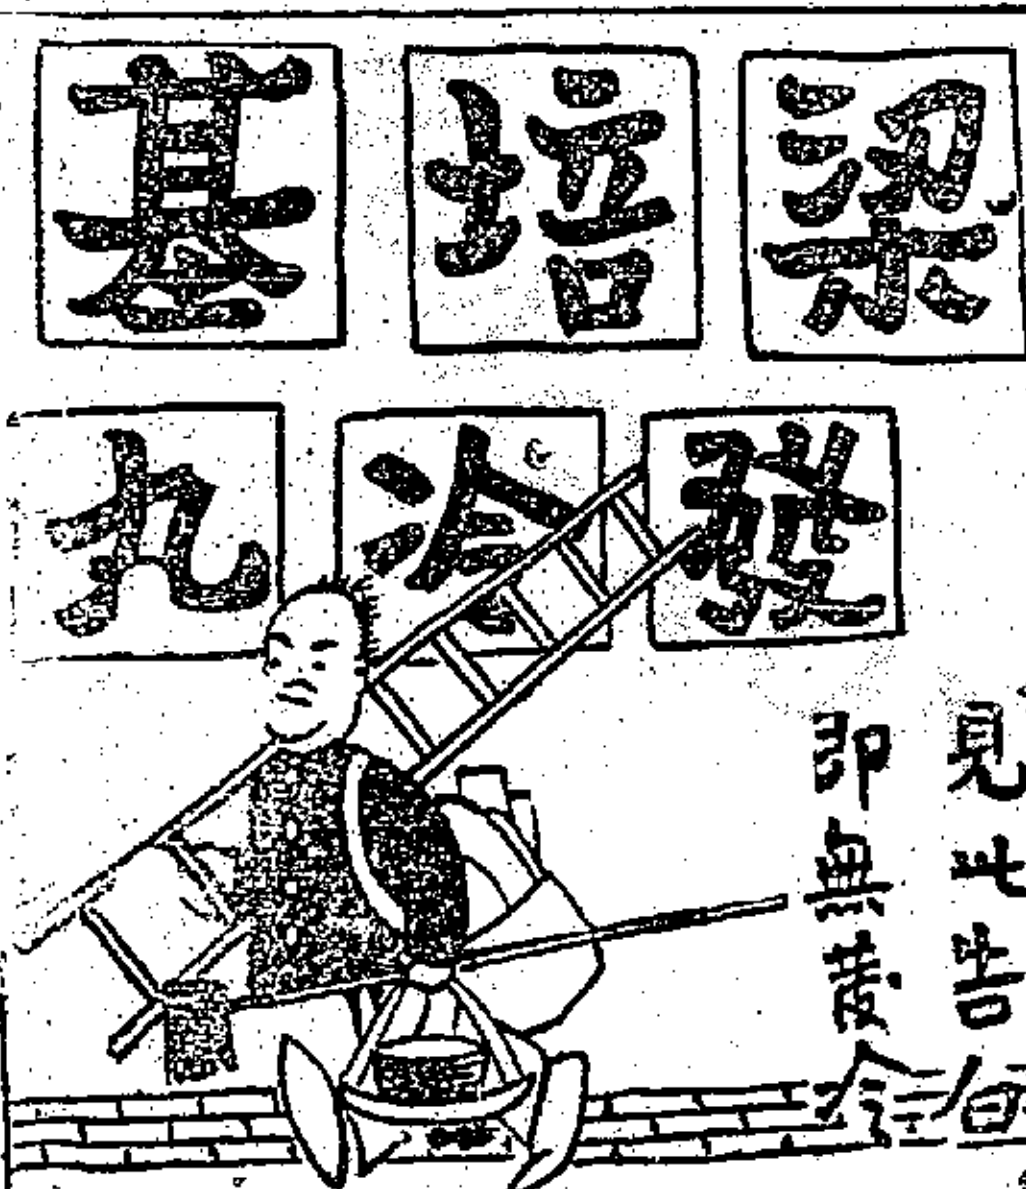 梁培基
發冷丸
見此告白
即發冷